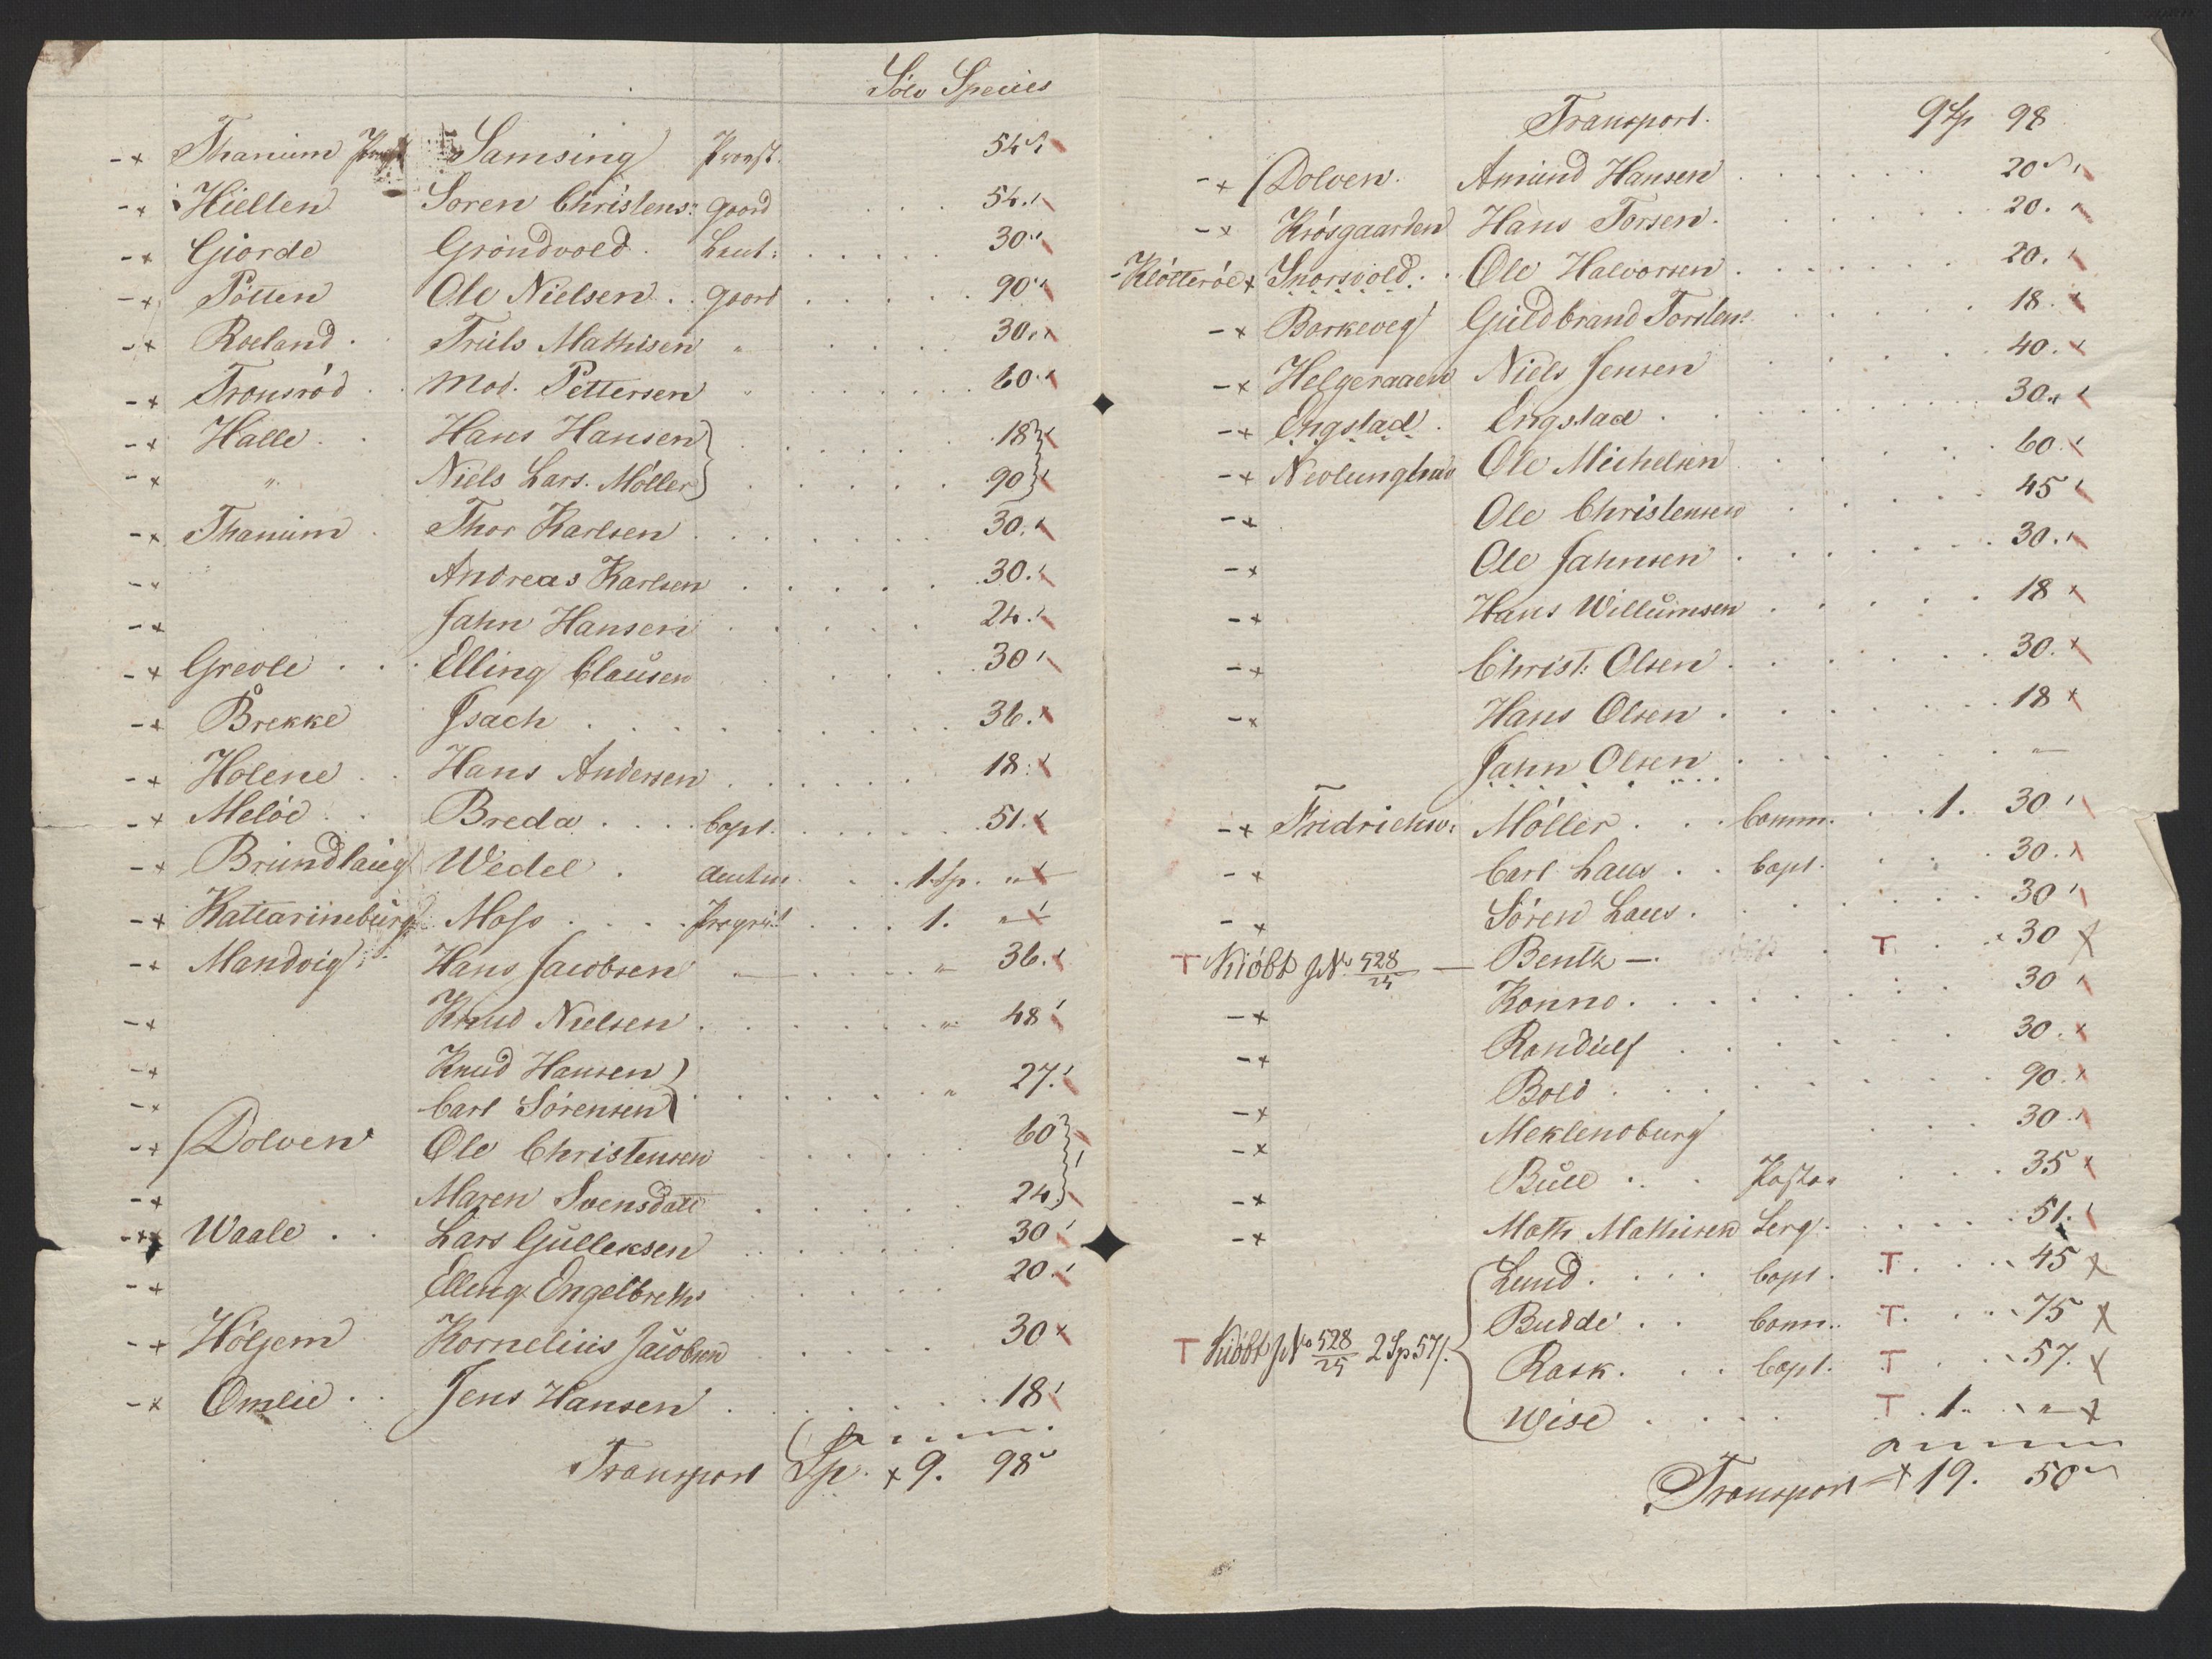 Sölv Species
-x Thanum Samsing Provst. 54
-x Hiellen Soren Christens: gaard 54.
-x Giorde Gröndvold. Leut: 30
-x Pötten Ole Nielsen . . gaard 90
-x Roeland . Truls Mathisen " 30
-x Tronsröd . . Mad. Pettersen " 60
-x Halle . . Hans Hansen 18
-x " Niels Lars. Möller 90
-x Thanum . Thor Karlsen 30.
-x Andreas Karlsen 30.
-x Jahn Hansen 24.
-x Grevle . . . Elling Clausen 30
-x Brekke Isach 36.
-x Holene . . Hans Andersen 18.
-x Melöe . . Breda . . . . Capt. 51.
-x Brundlaug Wedel . Amtm. 1 Sp. "
-x Kattarineburg Moss . . . . 1. "
-x Mandvig Hans Jacobsen " 36.
-x Knud Nielsen " 48
-x Knud Hansen
-x Carl Sörensen " 27.
-x Dolven Ole Christensen 60
-x Maren Svensdatt 24
-x Waale . . Lars Gulleksen 30
-x Elling Engelbreths 20.
-x Höljem Kornelius Jacobsen 30
-x Omlie . . Jens Hansen 18
Transport Sp. x 9. 98
Transport. 9 Sp 98
-x Dolven. Amund Hansen 20
-x Krösgaarden Hans Torsen. 20.
-Klötteröe x Snorsvold . . Ole Halvorsen 20.
-x Barkeveg Guldbrand Torstens. 18.
-x Helgeraaen Niels Jensen 40.
-x Engstad . Engstad 30.
-x Nevlunghav Ole Michelsen 60.
-x Ole Christensen 45
-x Ole Jahnsen 30.
-x Hans Willumsen 18
-x Christ: Olsen 30.
-x Hans Olsen 18
Jahn Olsen —
-x Fridrichsv: Möller . . . Comm. 1. 30
-x Carl Laus . . Capt. 30.
-x Sören Laus 30
T Kiöbt JNo 528/25 — Bentz —. T. 30 x
-x Konno 30
-x Randulf 30.
-x Bold 90.
-x Meklenburg 30.
-x Bull . . . Pastor 35
-x Math Mathisen Serg. 51.
Lund . . . . Capt. T. 45 x
Budde . . . Comm. T. 75 x
T Kiöbt JNo 528/25 2 Sp 57 Rask . . . Capt. T 57. x
Wise T 1. " x
Transport x 19. 50